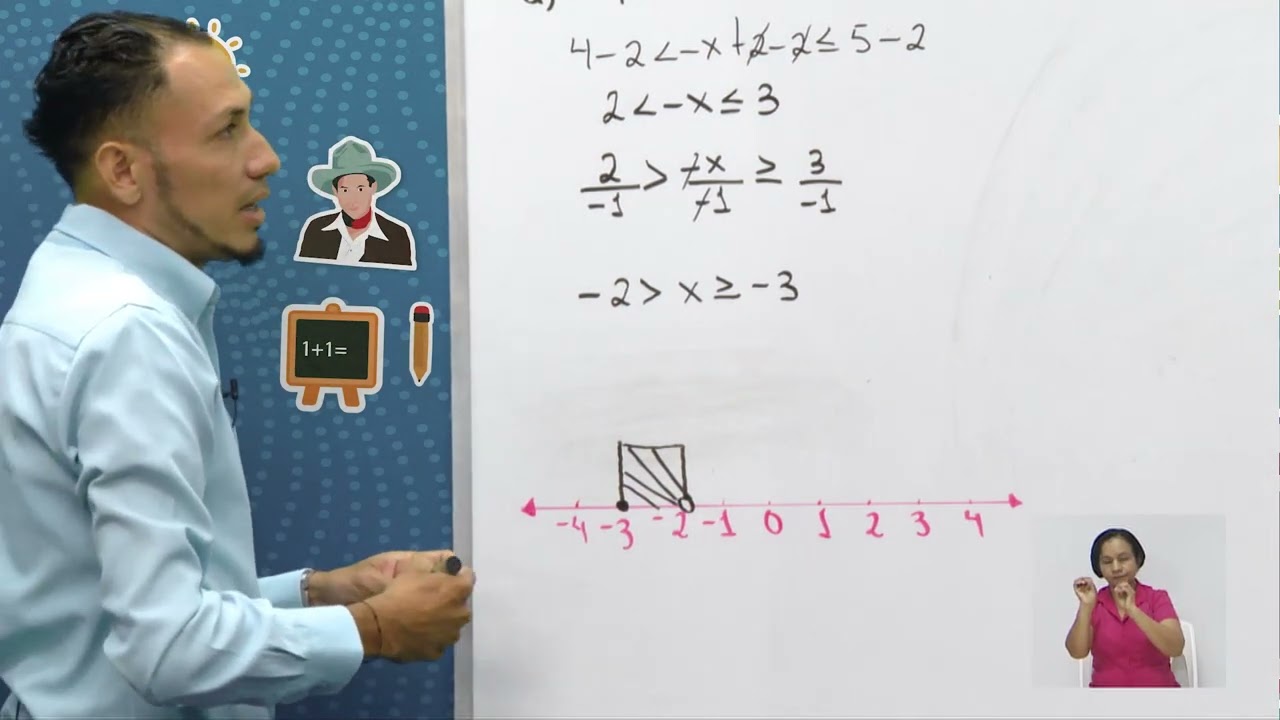 4-2<-x+2-2≤5-2
2<-x≤3
2/-1 > -x/-1 ≥ 3/-1
-2> x≥-3
1+1=
-4 -3 -2 -1 0 1 2 3 4